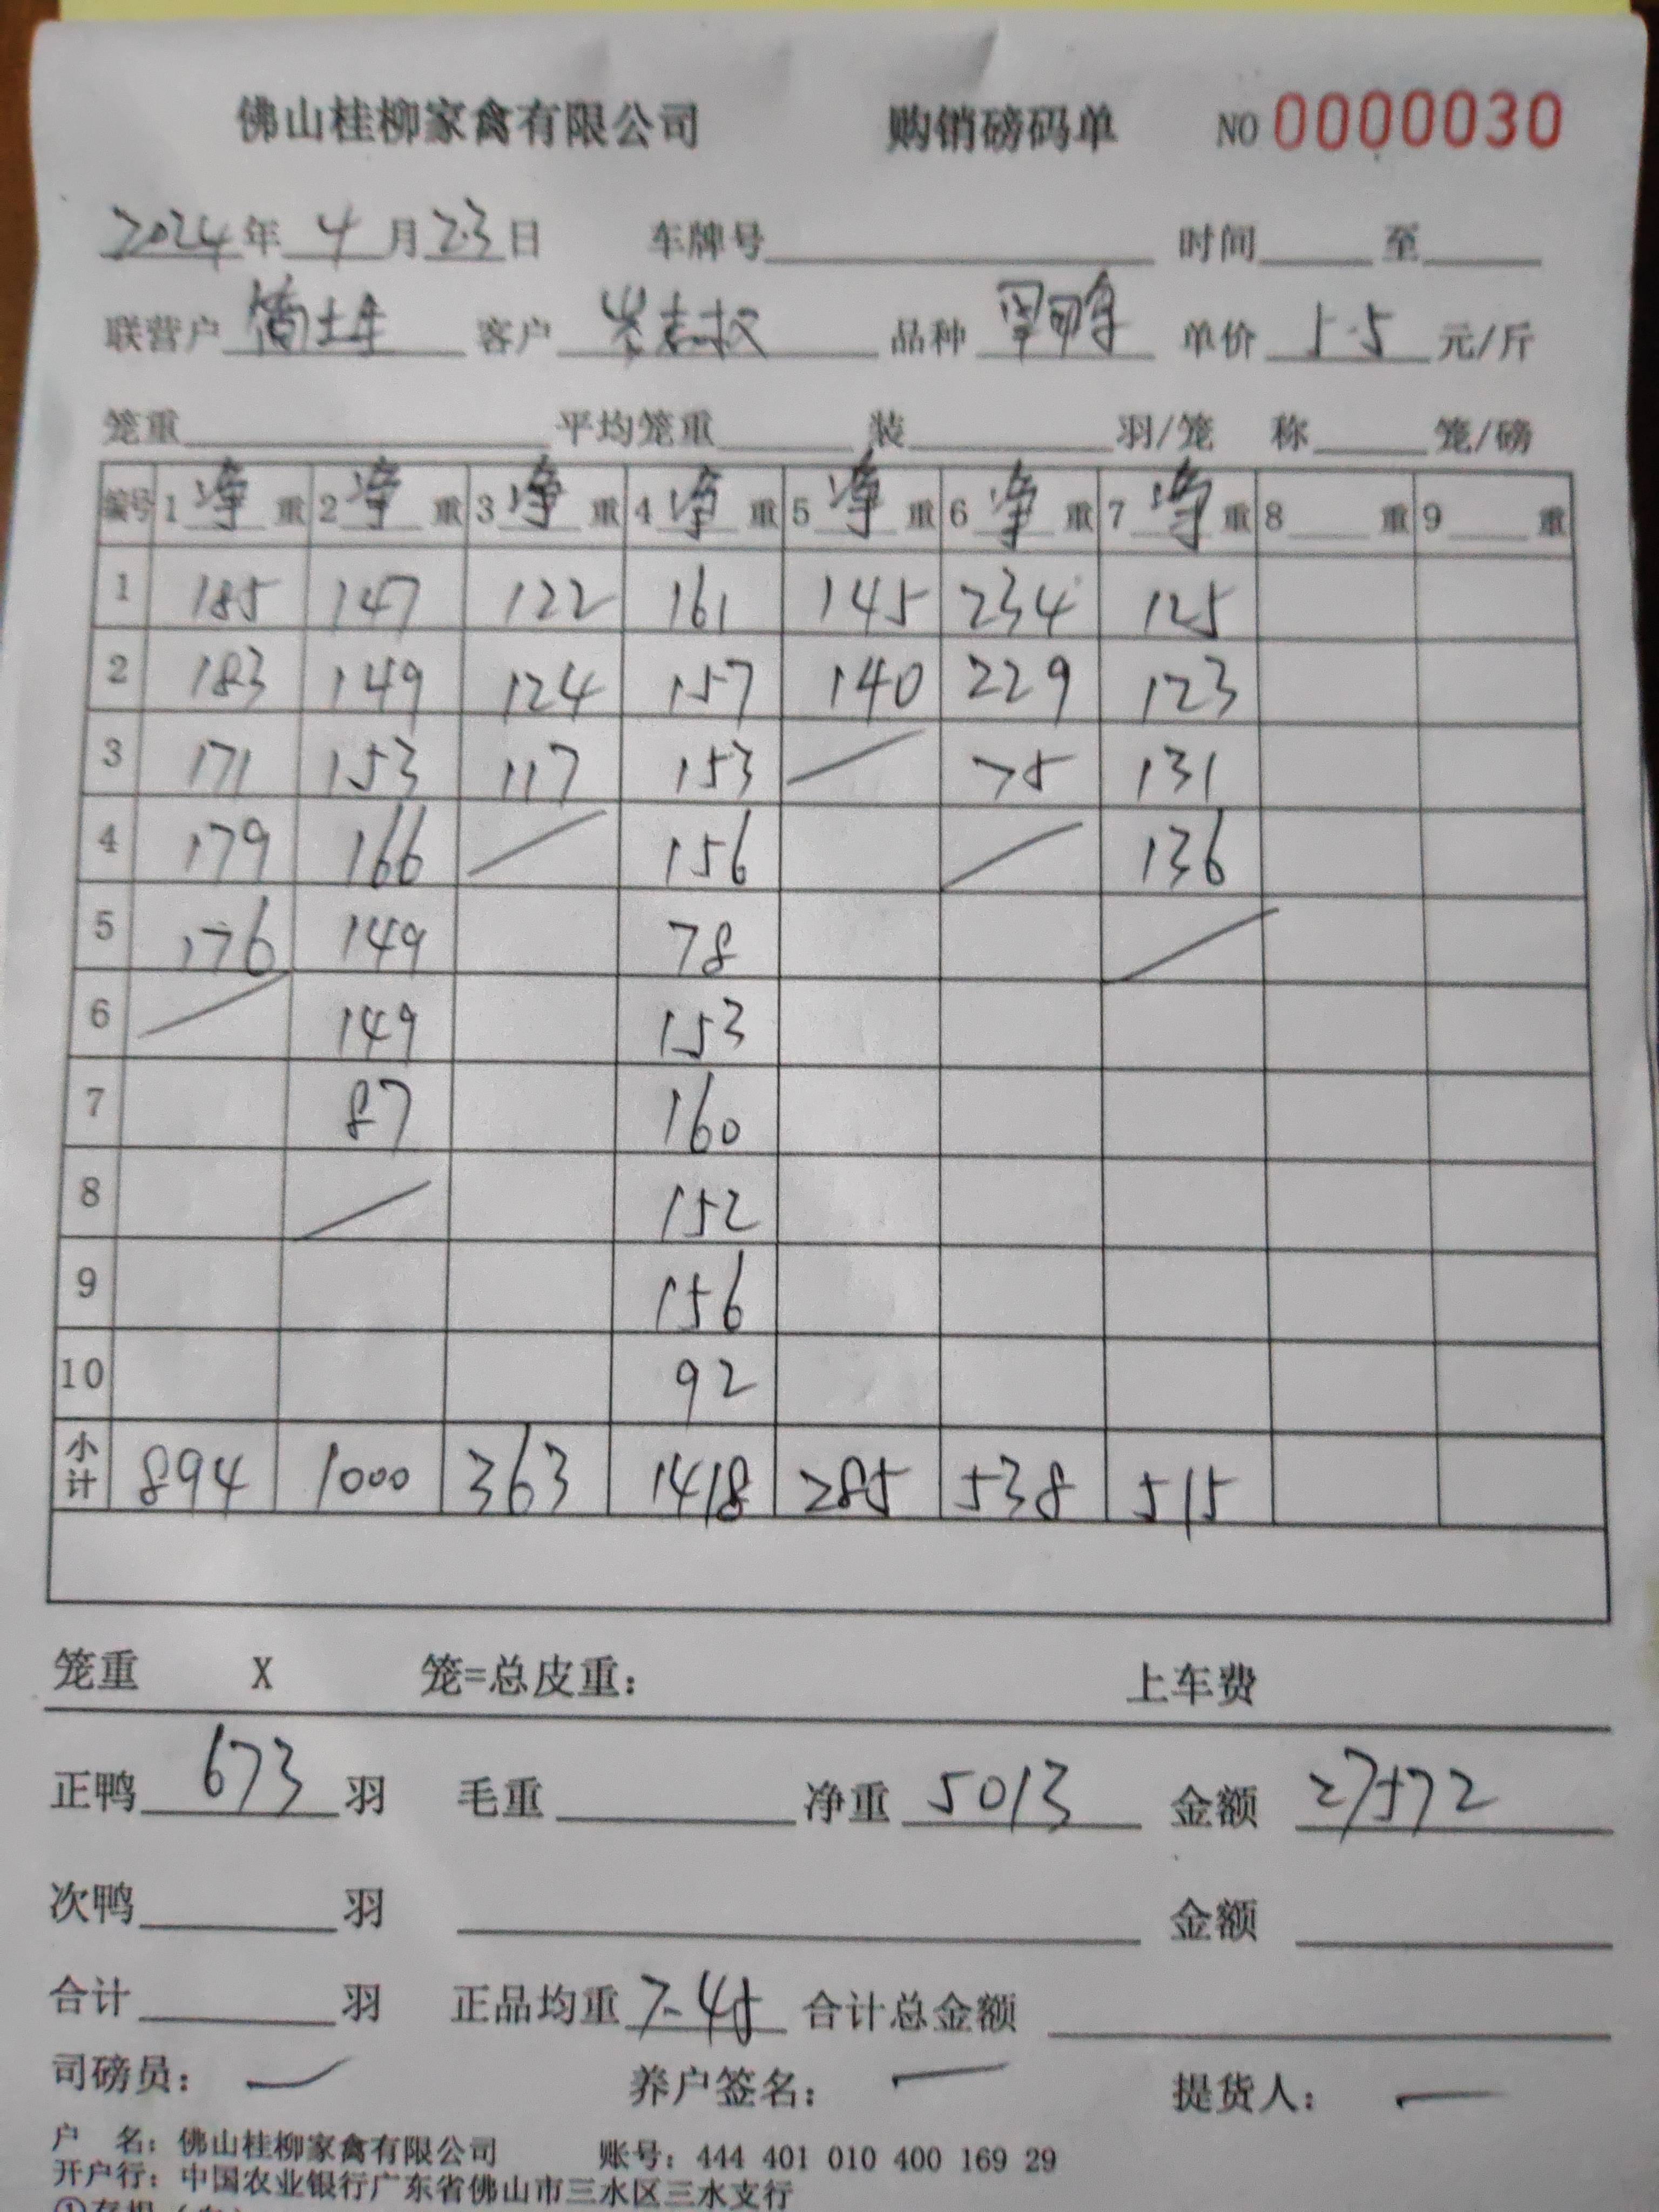 佛山桂柳家禽有限公司 购销磅码单 NO 0000030
2024年 4 月 23 日 车牌号 时间 至
联营户 客户 品种 单价 5.5 元/斤
笼重 平均笼重 装 羽/笼 称 笼/磅
编号 1 净 重 2 净 重 3 净 重 4 净 重 5 净 重 6 净 重 7 净 重 8 重 9 重
1 185 147 122 161 145 234 125
2 183 149 124 157 140 229 123
3 171 153 117 153 75 131
4 179 166 156 136
5 176 149 78
6 149 153
7 87 160
8 152
9 156
10 92
小计 894 1000 363 1418 285 538 515
笼重 X 笼=总皮重: 上车费
正鸭 673 羽 毛重 净重 5013 金额 27572
次鸭 羽 金额
合计 羽 正品均重 7.45 合计总金额
司磅员: 养户签名: 提货人:
户 名: 佛山桂柳家禽有限公司 账号: 444 401 010 400 169 29
开户行: 中国农业银行广东省佛山市三水区三水支行